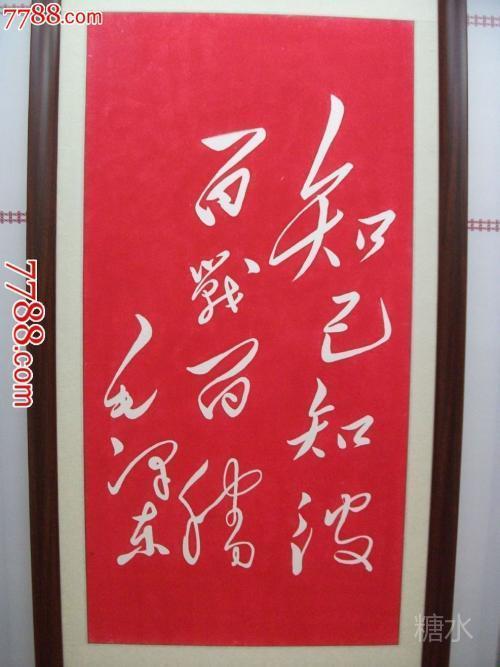 7788.com
知己知彼
百戰百勝
毛泽东
7788.com
糖水